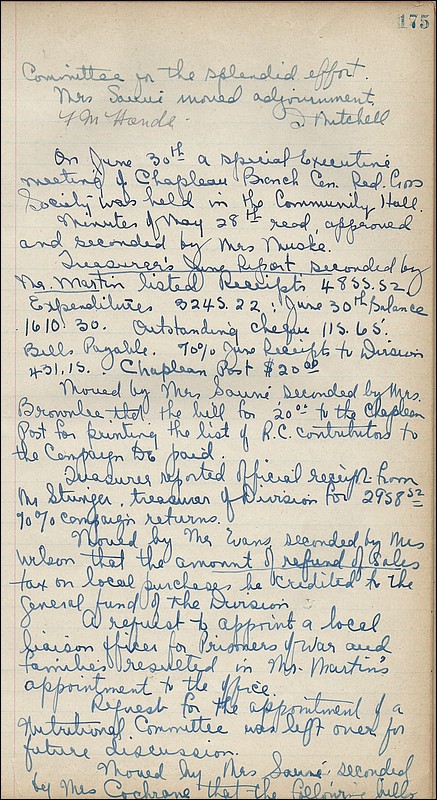 175
Committee for the splendid effort.
Mrs Sauvé moved adjournment,
F M Hands. I Mitchell
On June 30th a special Executive
meeting of Chapleau Branch Can. Red. Cross
Society was held in the Community Hall.
Minutes of May 28th read, approved
and seconded by Mrs Muske.
Treasurer's June Report seconded by
Mr. Martin listed Receipts 4855.52,
Expenditures 3245.22; June 30th Balance
1610.30. Outstanding cheque 115.65.
Bills Payable. 70% June Receipts to Division
431.15. Chapleau Post $20.00
Moved by Mrs Sauvé seconded by Mrs.
Brownlee that the bill for 20.00 to the Chapleau
Post for printing the list of R.C. contributors to
the Campaign be paid.
Treasurer reported official receipt from
Mr Stringer, treasurer of Division for 2958 52
70% campaign returns.
Moved by Mrs Evans, seconded by Mrs
Wilson that the amount of refund of sales
tax on local purchases be credited to the
general fund of the Division
A request to appoint a local
liaison officer for Prisoners of War and
families resulted in Mr. Martin's
appointment to the office.
Request for the appointment of a
Nutritional Committee was left over for
future discussion.
Moved by Mrs Sauvé seconded
by Mrs Cochrane that the following bills